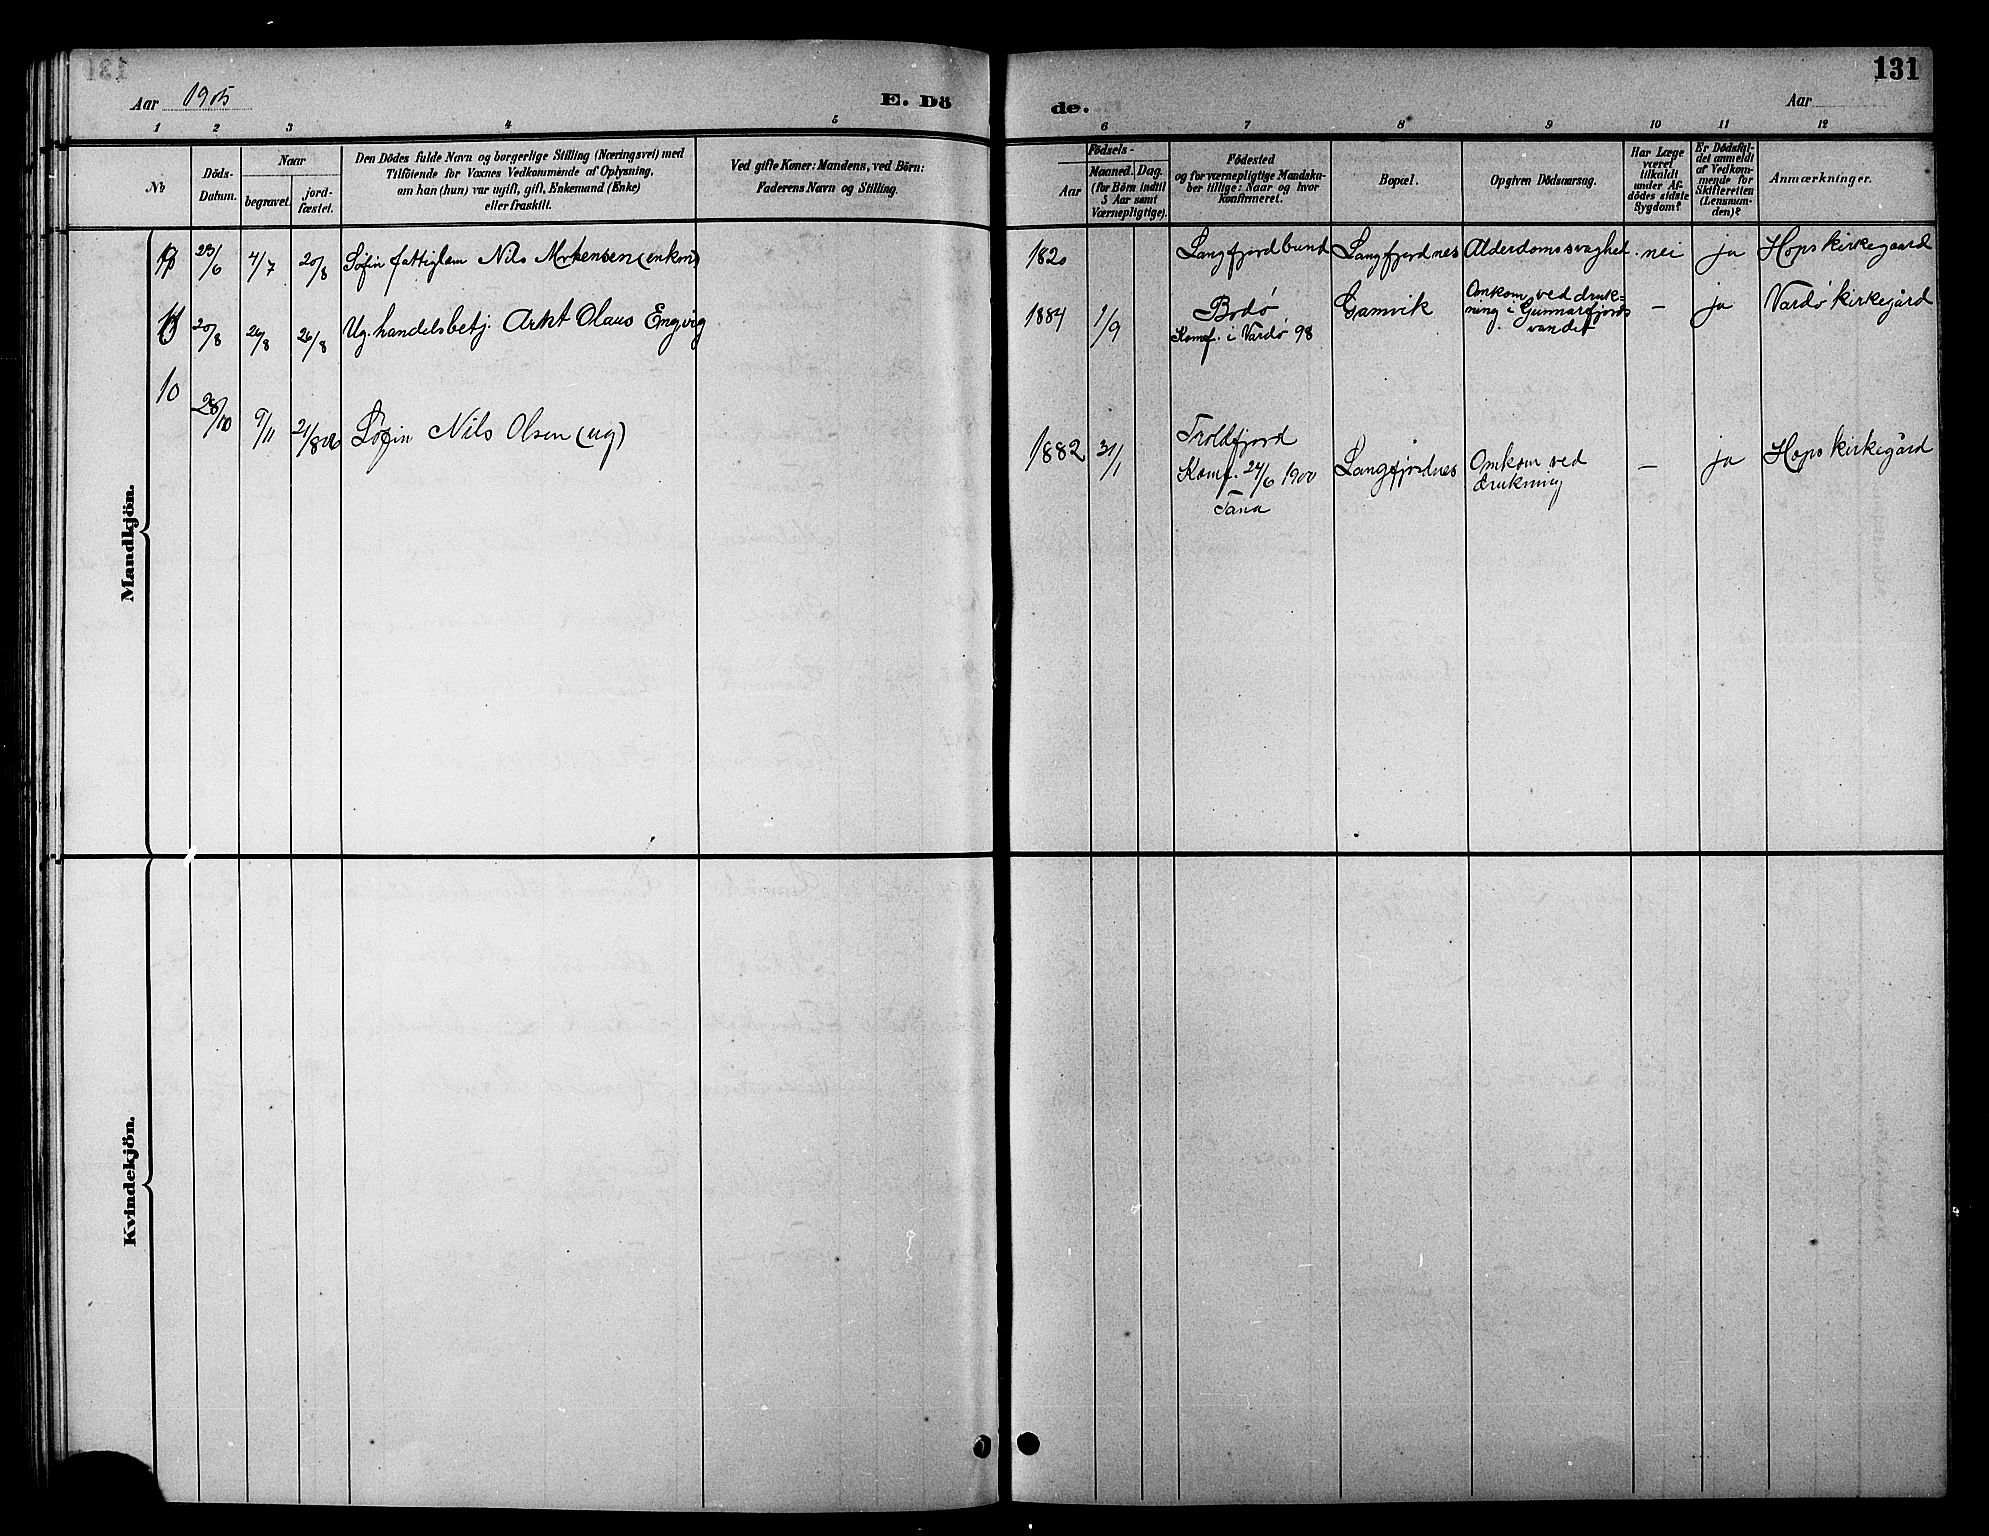 131
Aar 1905
E. Dö
de.
Aar
1 2 3 4 5 6 7 8 9 10 11 12
No
Döds-
Datum.
Naar
begravet.
jord-
fæstet.
Den Dödes fulde Navn og borgerlige Stilling (Næringsvei) med
Tilföiende for Voxnes Vedkommende af Oplysning,
om han (hun) var ugift, gift, Enkemand (Enke)
eller fraskilt.
Ved gifte Koner: Mandens, ved Börn:
Faderens Navn og Stilling.
Födsels-
Aar
Maaned. Dag.
(for Börn indtil
5 Aar samt
Værnepligtige).
Födested
og for værnepligtige Mandska-
ber tillige: Naar og hvor
konfirmeret.
Bopæl.
Opgiven Dödsaarsag.
Har Læge
været
tilkaldt
under Af-
dödes sidste
Sygdom?
Er Dödsfal-
det anmeldt
af Vedkom-
mende for
Skifteretten
(Lensman-
den)?
Anmærkninger.
Mandkjön.
23/6 4/7 20/8 Søfin fattiglem Nils Mortensen (enkem) 1820 Langfjordbund Langfjordnes Alderdomssvaghed nei ja Hops kirkegaard
20/8 26/8 26/8 Ug. handelsbetj. Arkt Olaus Engvig 1884 1/9 Bodø Gamvik Omkom ved druk- — ja Vardø kirkegård
Komf. i Vardø 98 ning i Gunnarfjords
vandet
10
28/10 9/11 21/8 06 Søfin Nils Olsen (ug) 1882 31/1 Troldfjord
Komf. 24/6 1900 Langfjordnes Omkom ved — ja Hops kirkegård
Tana drukning
Kvindekjön.